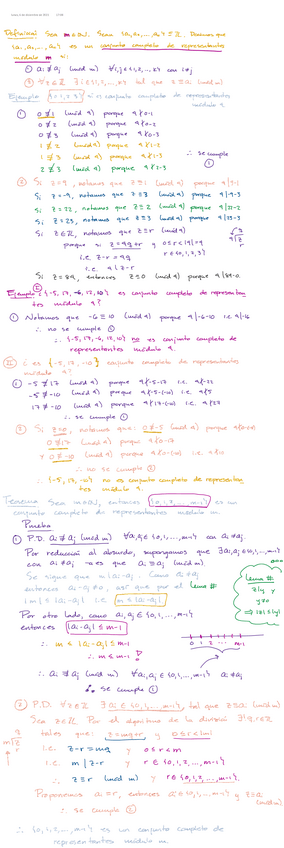 Definición: Sea m∈ℕ. Sean {a₁, a₂, ..., aₖ} ⊆ ℤ. Decimos que
{a₁, a₂, ..., aₖ} es un conjunto completo de representantes
módulo m si:
① aᵢ ≢ aⱼ (mód m) ∀i,j∈{1,2,...,k} con i≠j
② ∀z∈ℤ ∃i∈{1,2,...,k} tal que z≡aᵢ (mód m)
Ejemplo {0,1,2,3} si es conjunto completo de representantes
módulo 4.
① 0≢1 (mód 4) porque 4∤0-1
0≢2 (mód 4) porque 4∤0-2
0≢3 (mód 4) porque 4∤0-3
1≢2 (mód 4) porque 4∤1-2
1≢3 (mód 4) porque 4∤1-3
2≢3 (mód 4) porque 4∤2-3
∴ se cumple ①
② Si z=9, notamos que z≡1 (mód 4) porque 4|9-1
Si z=-9, notamos que z≡3 (mód 4) porque 4|-9-3
Si z=22, notamos que z≡2 (mód 4) porque 4|22-2
Si z=23, notamos que z≡3 (mód 4) porque 4|23-3
Si z∈ℤ, notamos que z≡r (mód 4)
porque si z=4q+r y 0≤r<|4|=4
i.e. z-r=4q r∈{0,1,2,3}
i.e. 4|z-r
Si z=84, entonces z≡0 (mód 4) porque 4|84-0
Ejemplo ¿{-5,17,-6,13,10} es conjunto completo de representan
tes módulo 4?
① Notamos que -6≡10 (mód 4) porque 4|-6-10 i.e. 4|-16
∴ no se cumple ①
∴ {-5,17,-6,13,10} no es conjunto completo de
representantes módulo 4.
¿es {-5,17,-10} conjunto completo de representantes
módulo 4?
① -5≢17 (mód 4) porque 4∤-5-17 i.e. 4∤-22
-5≢-10 (mód 4) porque 4∤-5-(-10) i.e. 4∤5
17≢-10 (mód 4) porque 4∤17-(-10) i.e. 4∤27
∴ se cumple ①
② Si z=0, notamos que: 0≢-5 (mód 4) porque 4∤0-(-5)
0≢17 (mód 4) porque 4∤0-17
y 0≢-10 (mód 4) porque 4∤0-(-10) i.e. 4∤10
∴ no se cumple ②
∴ {-5,17,-10} no es conjunto completo de representan
tes módulo 4.
Teorema Sea m∈ℕ, entonces {0,1,2,...,m-1} es un
conjunto completo de representantes módulo m.
Prueba
① P.D. aᵢ≢aⱼ (mód m) ∀aᵢ,aⱼ∈{0,1,...,m-1} con aᵢ≠aⱼ.
Por reducción al absurdo, supongamos que ∃aᵢ,aⱼ∈{0,1,...,m-1}
con aᵢ≠aⱼ es que aᵢ≡aⱼ (mód m)
Se sigue que m|aᵢ-aⱼ. Como aᵢ≠aⱼ
entonces aᵢ-aⱼ≠0, así que por el lema #
|m|≤|aᵢ-aⱼ| i.e. m≤|aᵢ-aⱼ|
lema #
z|y y
y≠0
⇒ |z|≤|y|
Por otro lado, como aᵢ,aⱼ∈{0,1,...,m-1}
entonces |aᵢ-aⱼ|≤m-1
0 1 2 ... m-1
∴ m≤|aᵢ-aⱼ|≤m-1
∴ m≤m-1 !
∴ aᵢ≢aⱼ (mód m) ∀aᵢ,aⱼ∈{0,1,...,m-1}, aᵢ≠aⱼ
∴ se cumple ①
② P.D. ∀z∈ℤ ∃aᵢ∈{0,1,...,m-1}, tal que z≡aᵢ (mód m)
Sea z∈ℤ. Por el algoritmo de la división ∃!q,r∈ℤ
tales que: z=mq+r y 0≤r<|m|
i.e. z-r=mq y 0≤r<m
i.e. m|z-r y r∈{0,1,2,...,m-1}
∴ z≡r (mód m) y r∈{0,1,2,...,m-1}.
Proponemos aᵢ=r, entonces aᵢ∈{0,1,...,m-1} y z≡aᵢ
(mód m)
∴ se cumple ②
∴ {0,1,2,...,m-1} es un conjunto completo de
representantes módulo m.